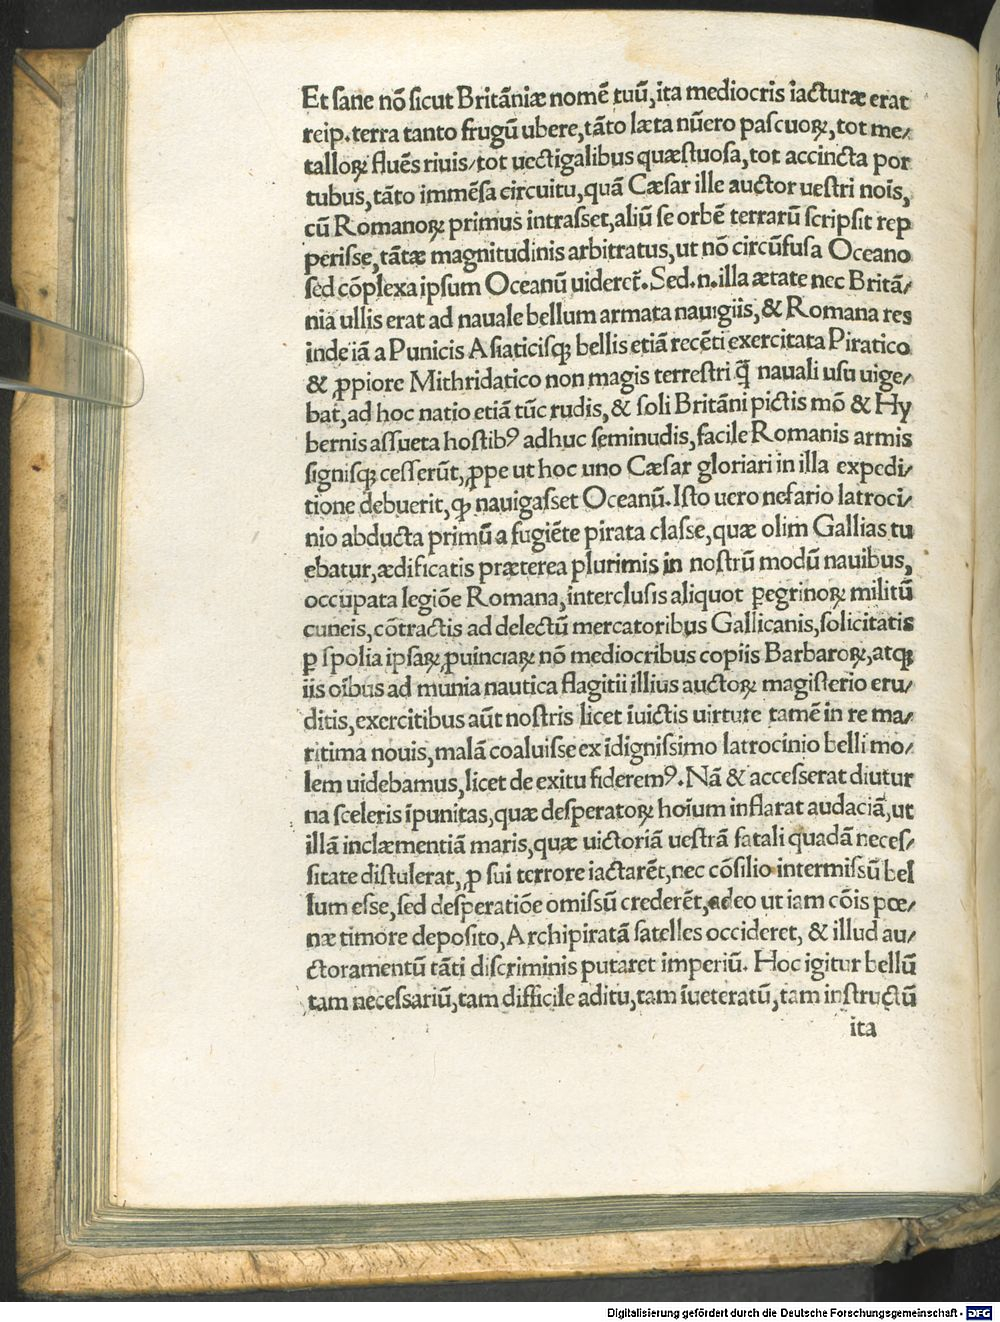 Et ſane nō ſicut Britāniæ nomē tuū, ita mediocris iacturæ erat
reip. terra tanto frugū ubere, tāto læta nūero paſcuoꝝ, tot me/
talloꝝ fluēs riuis/ tot uectigalibus quæſtuoſa, tot accincta por
tubus, tāto immēſa circuitu, quā Cæſar ille auctor ueſtri noīs,
cū Romanoꝝ primus intraſſet, aliū ſe orbē terrarū ſcripſit rep
periſſe, tātæ magnitudinis arbitratus, ut nō circūfuſa Oceano
ſed cōplexa ipſum Oceanū uideret̄. Sed .n. illa ætate nec Britā/
nia ullis erat ad nauale bellum armata nauigiis, & Romana res
inde iā a Punicis Aſiaticiſqꝫ bellis etiā recēti exercitata Piratico
& ꝓpiore Mithridatico non magis terreſtri q̄ nauali uſu uige/
bat, ad hoc natio etiā tūc rudis, & ſoli Britāni pictis mō & Hy
bernis aſſueta hoſtibꝰ adhuc ſeminudis, facile Romanis armis
ſigniſqꝫ ceſſerūt, ꝓpe ut hoc uno Cæſar gloriari in illa expedi/
tione debuerit, ꝙ nauigaſſet Oceanū. Iſto uero nefario latroci/
nio abducta primū a fugiēte pirata claſſe, quæ olim Gallias tu
ebatur, ædificatis præterea plurimis in noſtrū modū nauibus,
occupata legiōe Romana, intercluſis aliquot ꝑegrinoꝝ militū
cuneis, cōtractis ad delectū mercatoribus Gallicanis, ſolicitatis
ꝑ ſpolia ipſaꝝ ꝓuinciaꝝ nō mediocribus copiis Barbaroꝝ, atqꝫ
iis oībus ad munia nautica flagitii illius auctoꝝ magiſterio eru/
ditis, exercitibus aūt noſtris licet īuictis uirtute tamē in re ma/
ritima nouis, malā coaluiſſe ex īdigniſſimo latrocinio belli mo/
lem uidebamus, licet de exitu fideremꝰ. Nā & acceſſerat diutur
na ſceleris īpunitas, quæ deſperatoꝝ hoīum inflarat audaciā, ut
illā inclæmentiā maris, quæ uictoriā ueſtrā fatali quadā neceſ/
ſitate diſtulerat, ꝓ ſui terrore iactarēt, nec cōſilio intermiſſū bel
lum eſſe, ſed deſperatiōe omiſſū crederēt, adeo ut iam cōis pœ/
næ timore depoſito, Archipiratā ſatelles occideret, & illud au/
ctoramentū tāti diſcriminis putaret imperiū. Hoc igitur bellū
tam neceſſariū, tam difficile aditu, tam īueteratū, tam inſtructū
ita
Digitalisierung gefördert durch die Deutsche Forschungsgemeinschaft - DFG